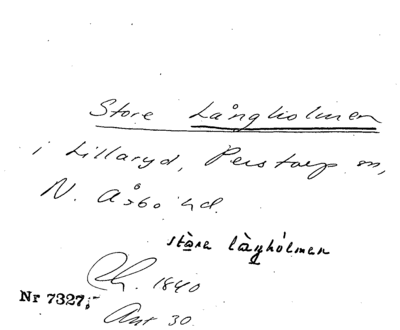 Store Långholmen
i Lillaryd, Perstorp sn,
N. Åsbo hd.
stòre làŋhólmen
Rh. 1840
Nr 7327;-
Ant 30